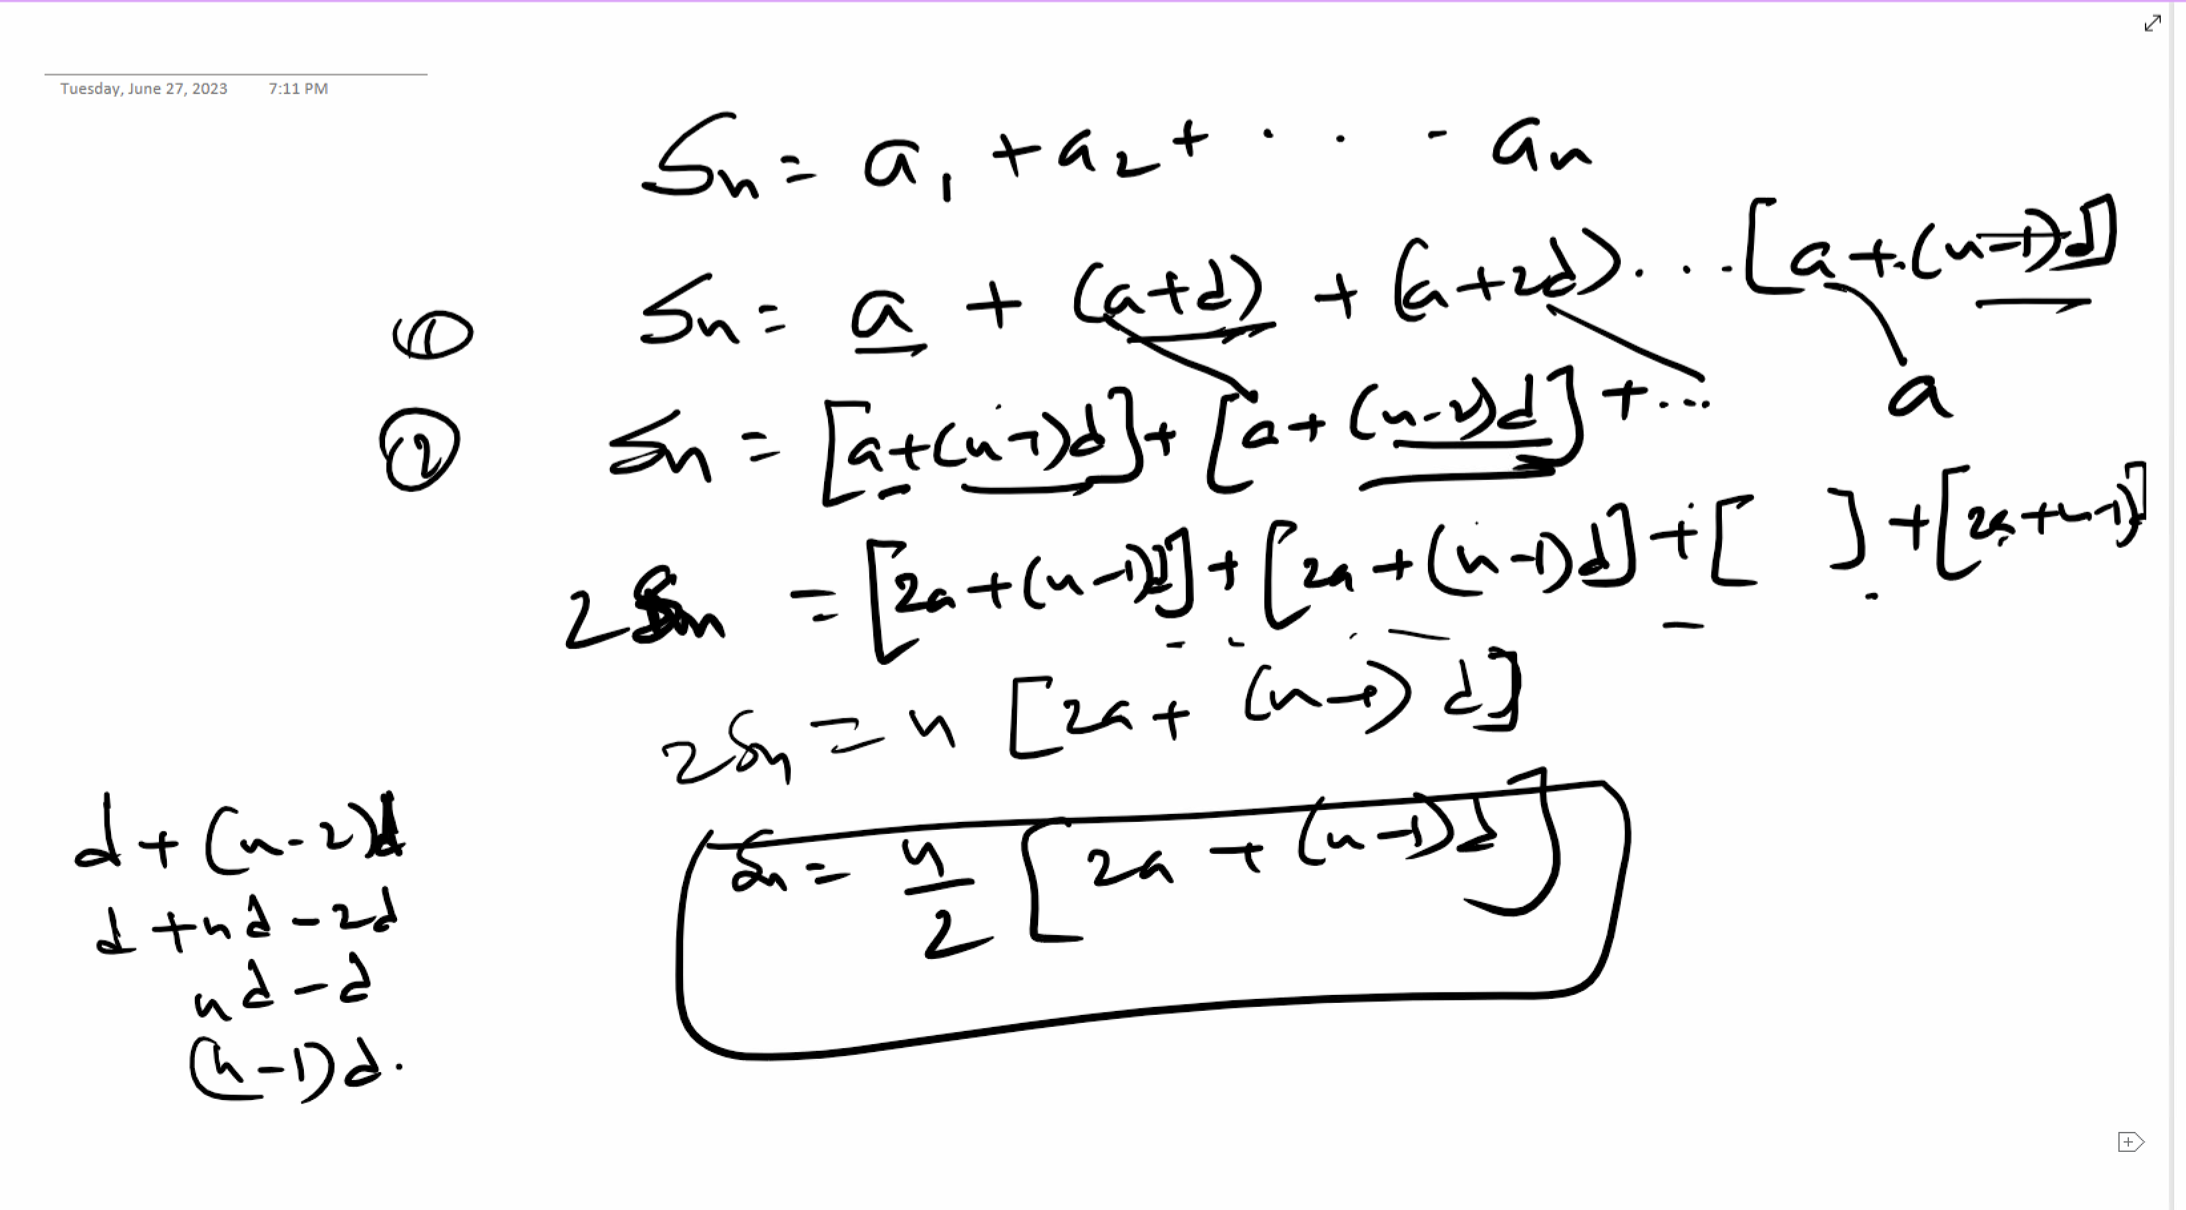 Tuesday, June 27, 2023 7:11 PM
Sn = a1 + a2 + . . . - an
① Sn = a + (a+d) + (a+2d) . . . [a+(n-1)d]
② Sn = [a+(n-1)d] + [a+(n-2)d] + ... a
2Sn = [2a+(n-1)d] + [2a+(n-1)d] + [ ] + [2a+n-1)]
2Sn = n [2a + (n-1) d]
Sn = n/2 [2a + (n-1)d]
d + (n-2)d
d + nd - 2d
nd - d
(n-1)d.